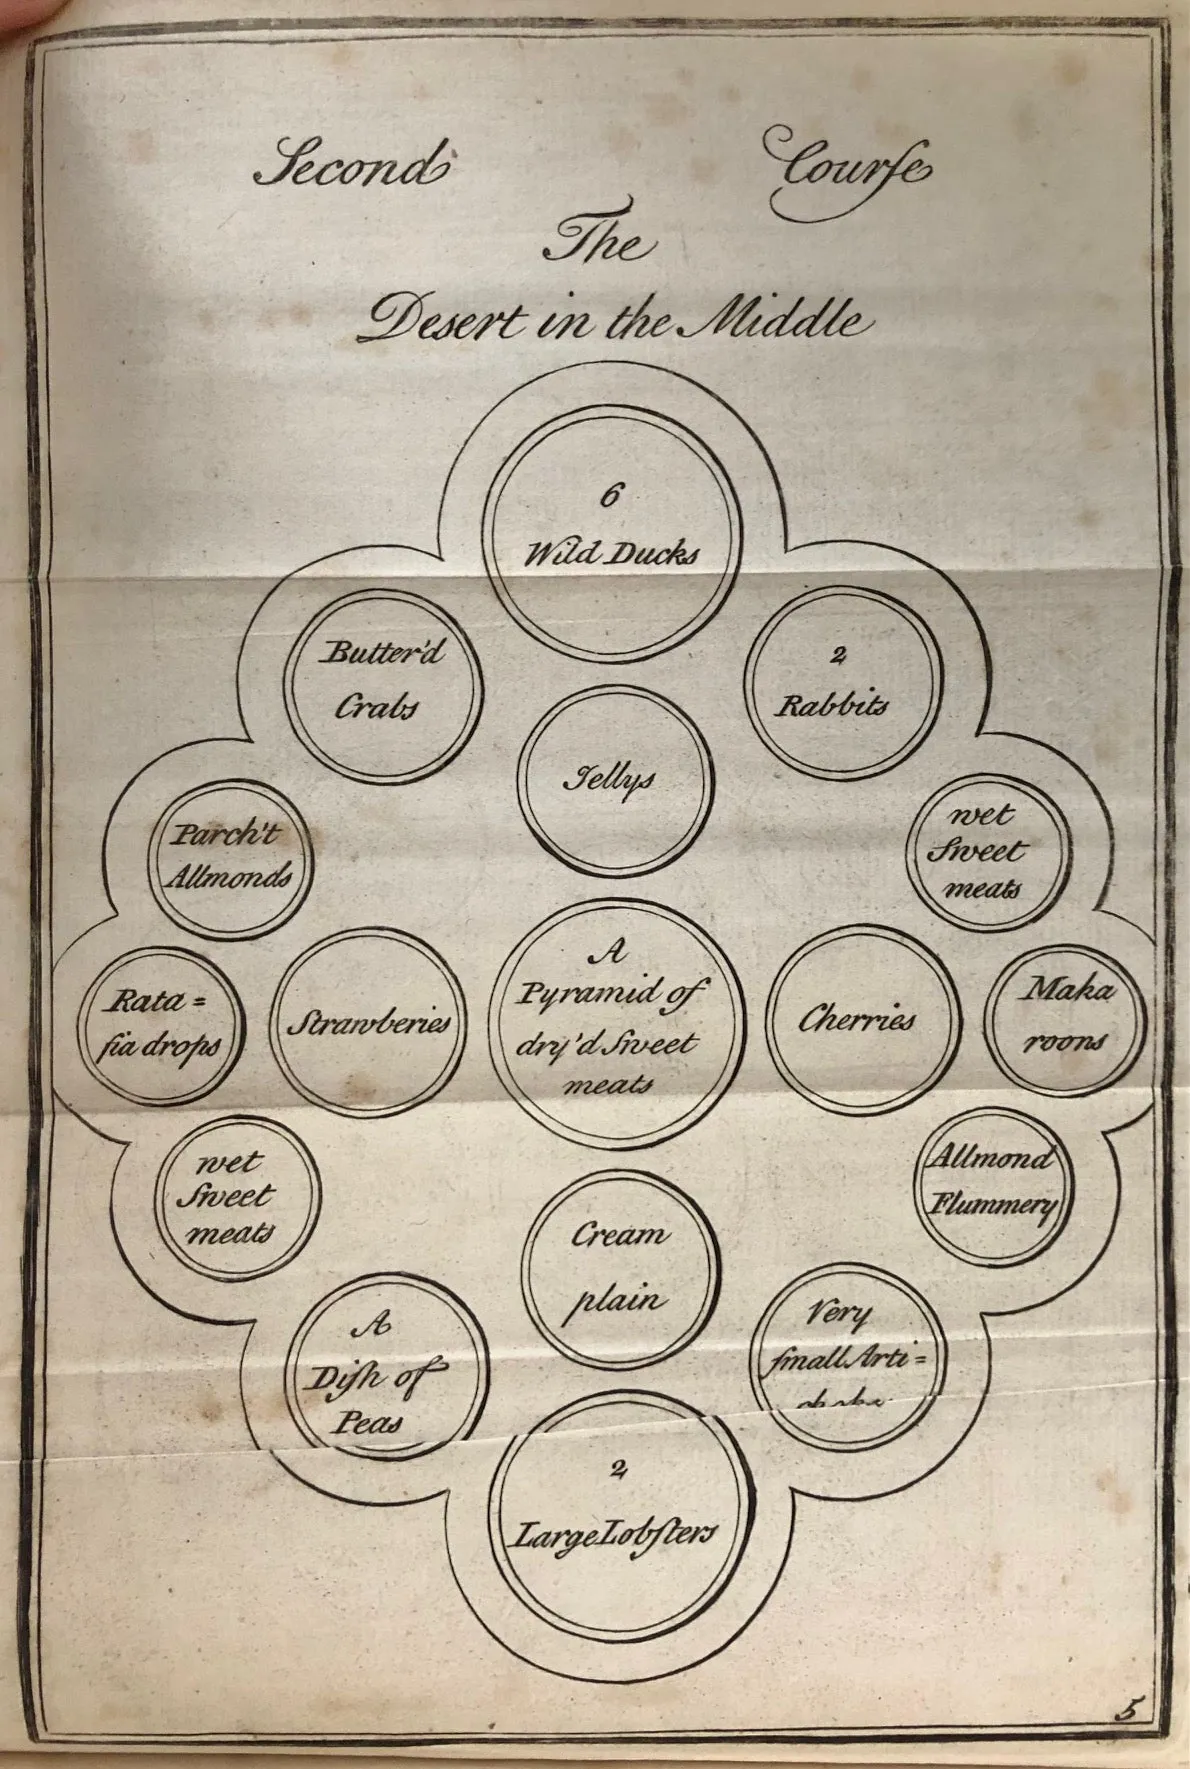 Second Courſe
The
Desert in the Middle
6
Wild Ducks
Butter'd
Crabs
2
Rabbits
Jellys
Parch't
Allmonds
wet
Sweet
meats
A
Pyramid of
dry'd Sweet
meats
Rata=
fia drops
Strawberies
Cherries
Maka
roons
wet
Sweet
meats
Allmond
Flummery
Cream
plain
A
Diſh of
Peas
Very
ſmall Arti=
2
Large Lobſters
5